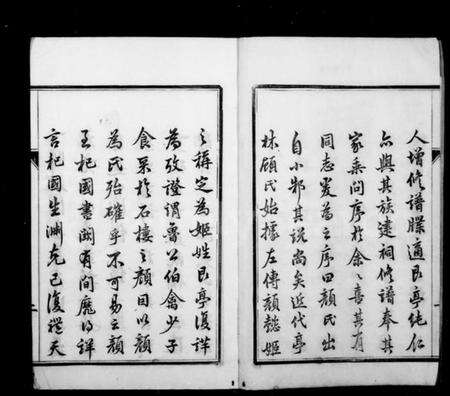 人增修譜牒適艮亭純仁
亦與其族建祠修譜奉其
家乘問序於余余喜其有
同志爰為之序曰顏氏出
自小邾其說尚矣近代亭
林顧氏始據左傳顏懿姬
之稱定為姬姓艮亭復詳
為攷證謂魯公伯禽少子
食采於石樓之顏因以顏
為氏殆確乎不可易之顏
至杞國書闕有間靡得詳
言杞國生淵克己復禮天